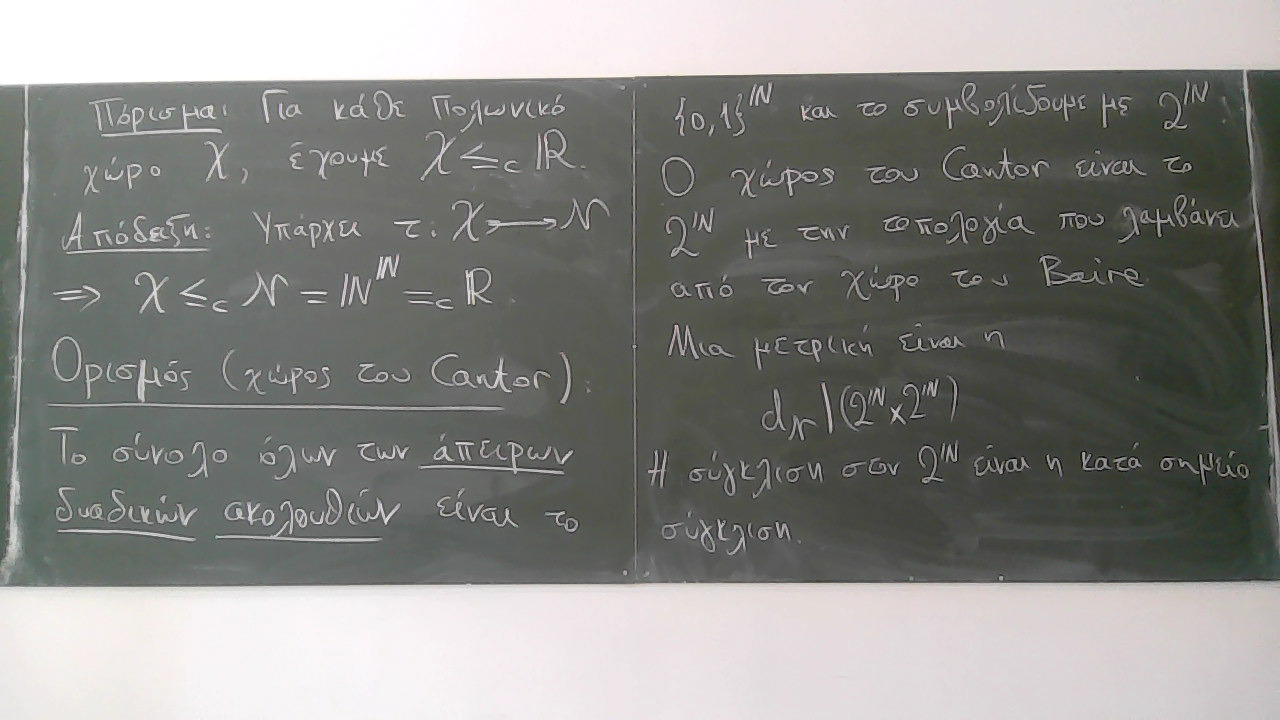 Πόρισμα: Για κάθε Πολωνικό
χώρο 𝒳, έχουμε 𝒳 ≤_c ℝ.
Απόδειξη: Υπάρχει τ: 𝒳 ↣ 𝒩
⇒ 𝒳 ≤_c 𝒩 = ℕ^ℕ =_c ℝ.
Ορισμός (χώρος του Cantor).
Το σύνολο όλων των άπειρων
δυαδικών ακολουθιών είναι το
{0,1}^ℕ και το συμβολίζουμε με 2^ℕ
Ο χώρος του Cantor είναι το
2^ℕ με την τοπολογία που λαμβάνει
από τον χώρο του Baire.
Μια μετρική είναι η
d_𝒩 | (2^ℕ × 2^ℕ)
Η σύγκλιση στον 2^ℕ είναι η κατά σημείο
σύγκλιση.